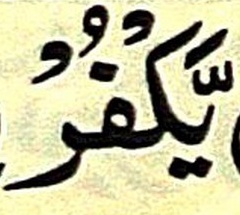 يَّكْفُرْ